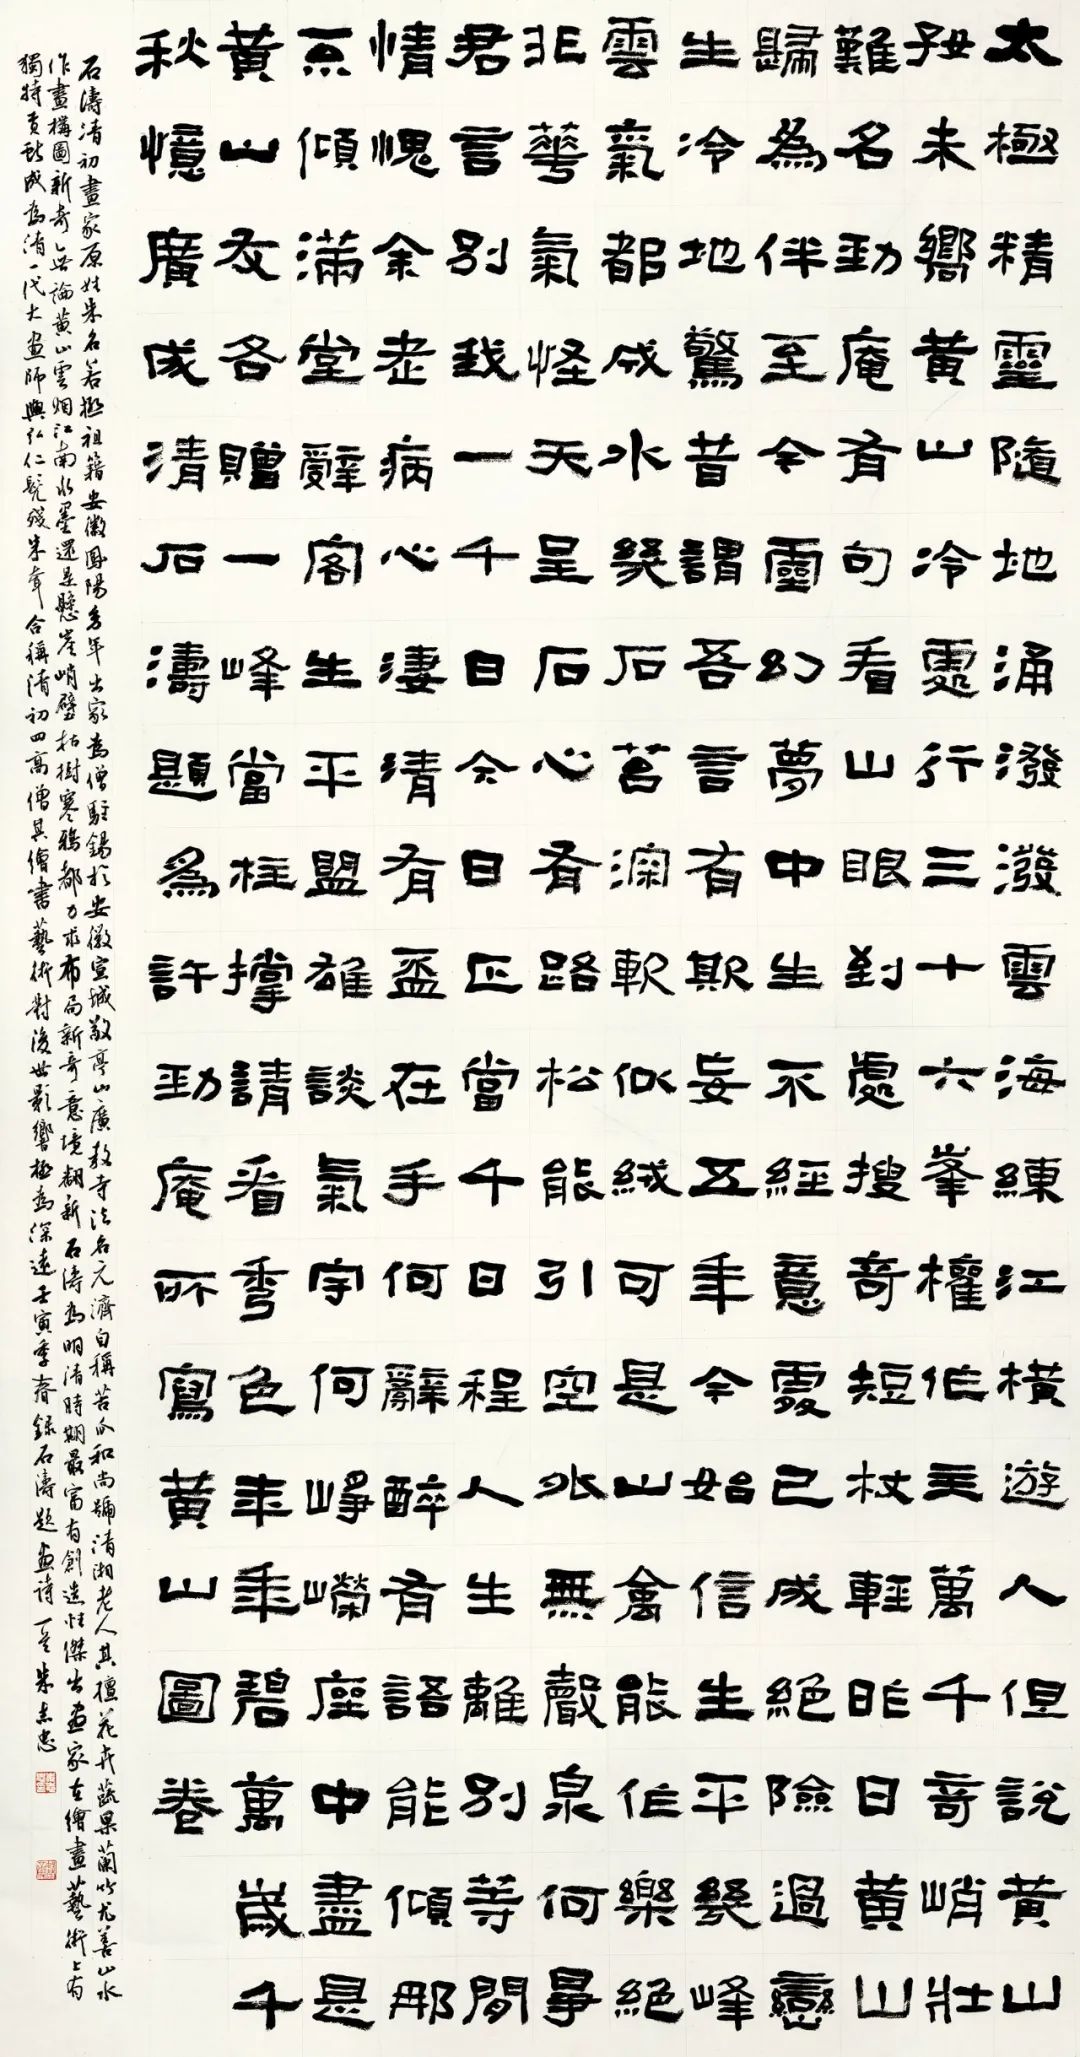 太極精靈隨地涌潑潑雲海練江橫遊人但說黃山
好未嚮黃山冷處行三十六峯權作主萬千奇峭壯
難名勁庵有句看山眼到處搜奇短杖輕昨日黃山
歸為伴至今靈幻夢中生不經意處已成絕險過巒
生冷地驚昔謂吾言有欺妄五年今始信生平幾峰
雲氣都成水幾石苔深軟似絨可是山禽能作樂絕
非華氣怪天呈石心有路松能引空外無聲泉何事
君言別我一千日今日正當千日程人生離別等閒
情愧余老病心淒清有盃在手何辭醉有語能傾那
傾滿堂辭客生平盟雄談氣宇何崢嶸座中盡是
黃山友各贈一峰當柱撐請看秀色年年碧萬歲千
秋憶廣成清石濤題為許勁庵所寫黃山圖卷
石濤清初畫家原姓朱名若極祖籍安徽鳳陽多年出家為僧駐錫於安徽宣城敬亭山廣教寺法名元濟自稱苦瓜和尚號清湘老人其擅花卉蔬果蘭竹尤善山水
作畫構圖新奇無論黃山雲烟江南水墨還是懸崖峭壁枯樹寒鴉都力求布局新奇意境翻新石濤為明清時期最富有創造性傑出畫家在繪畫藝術上有
獨特貢獻成為清一代大畫師與弘仁髡殘朱耷合稱清初四高僧其繪書藝術對後世影響極為深遠壬寅季春錄石濤題畫詩一首朱志忠